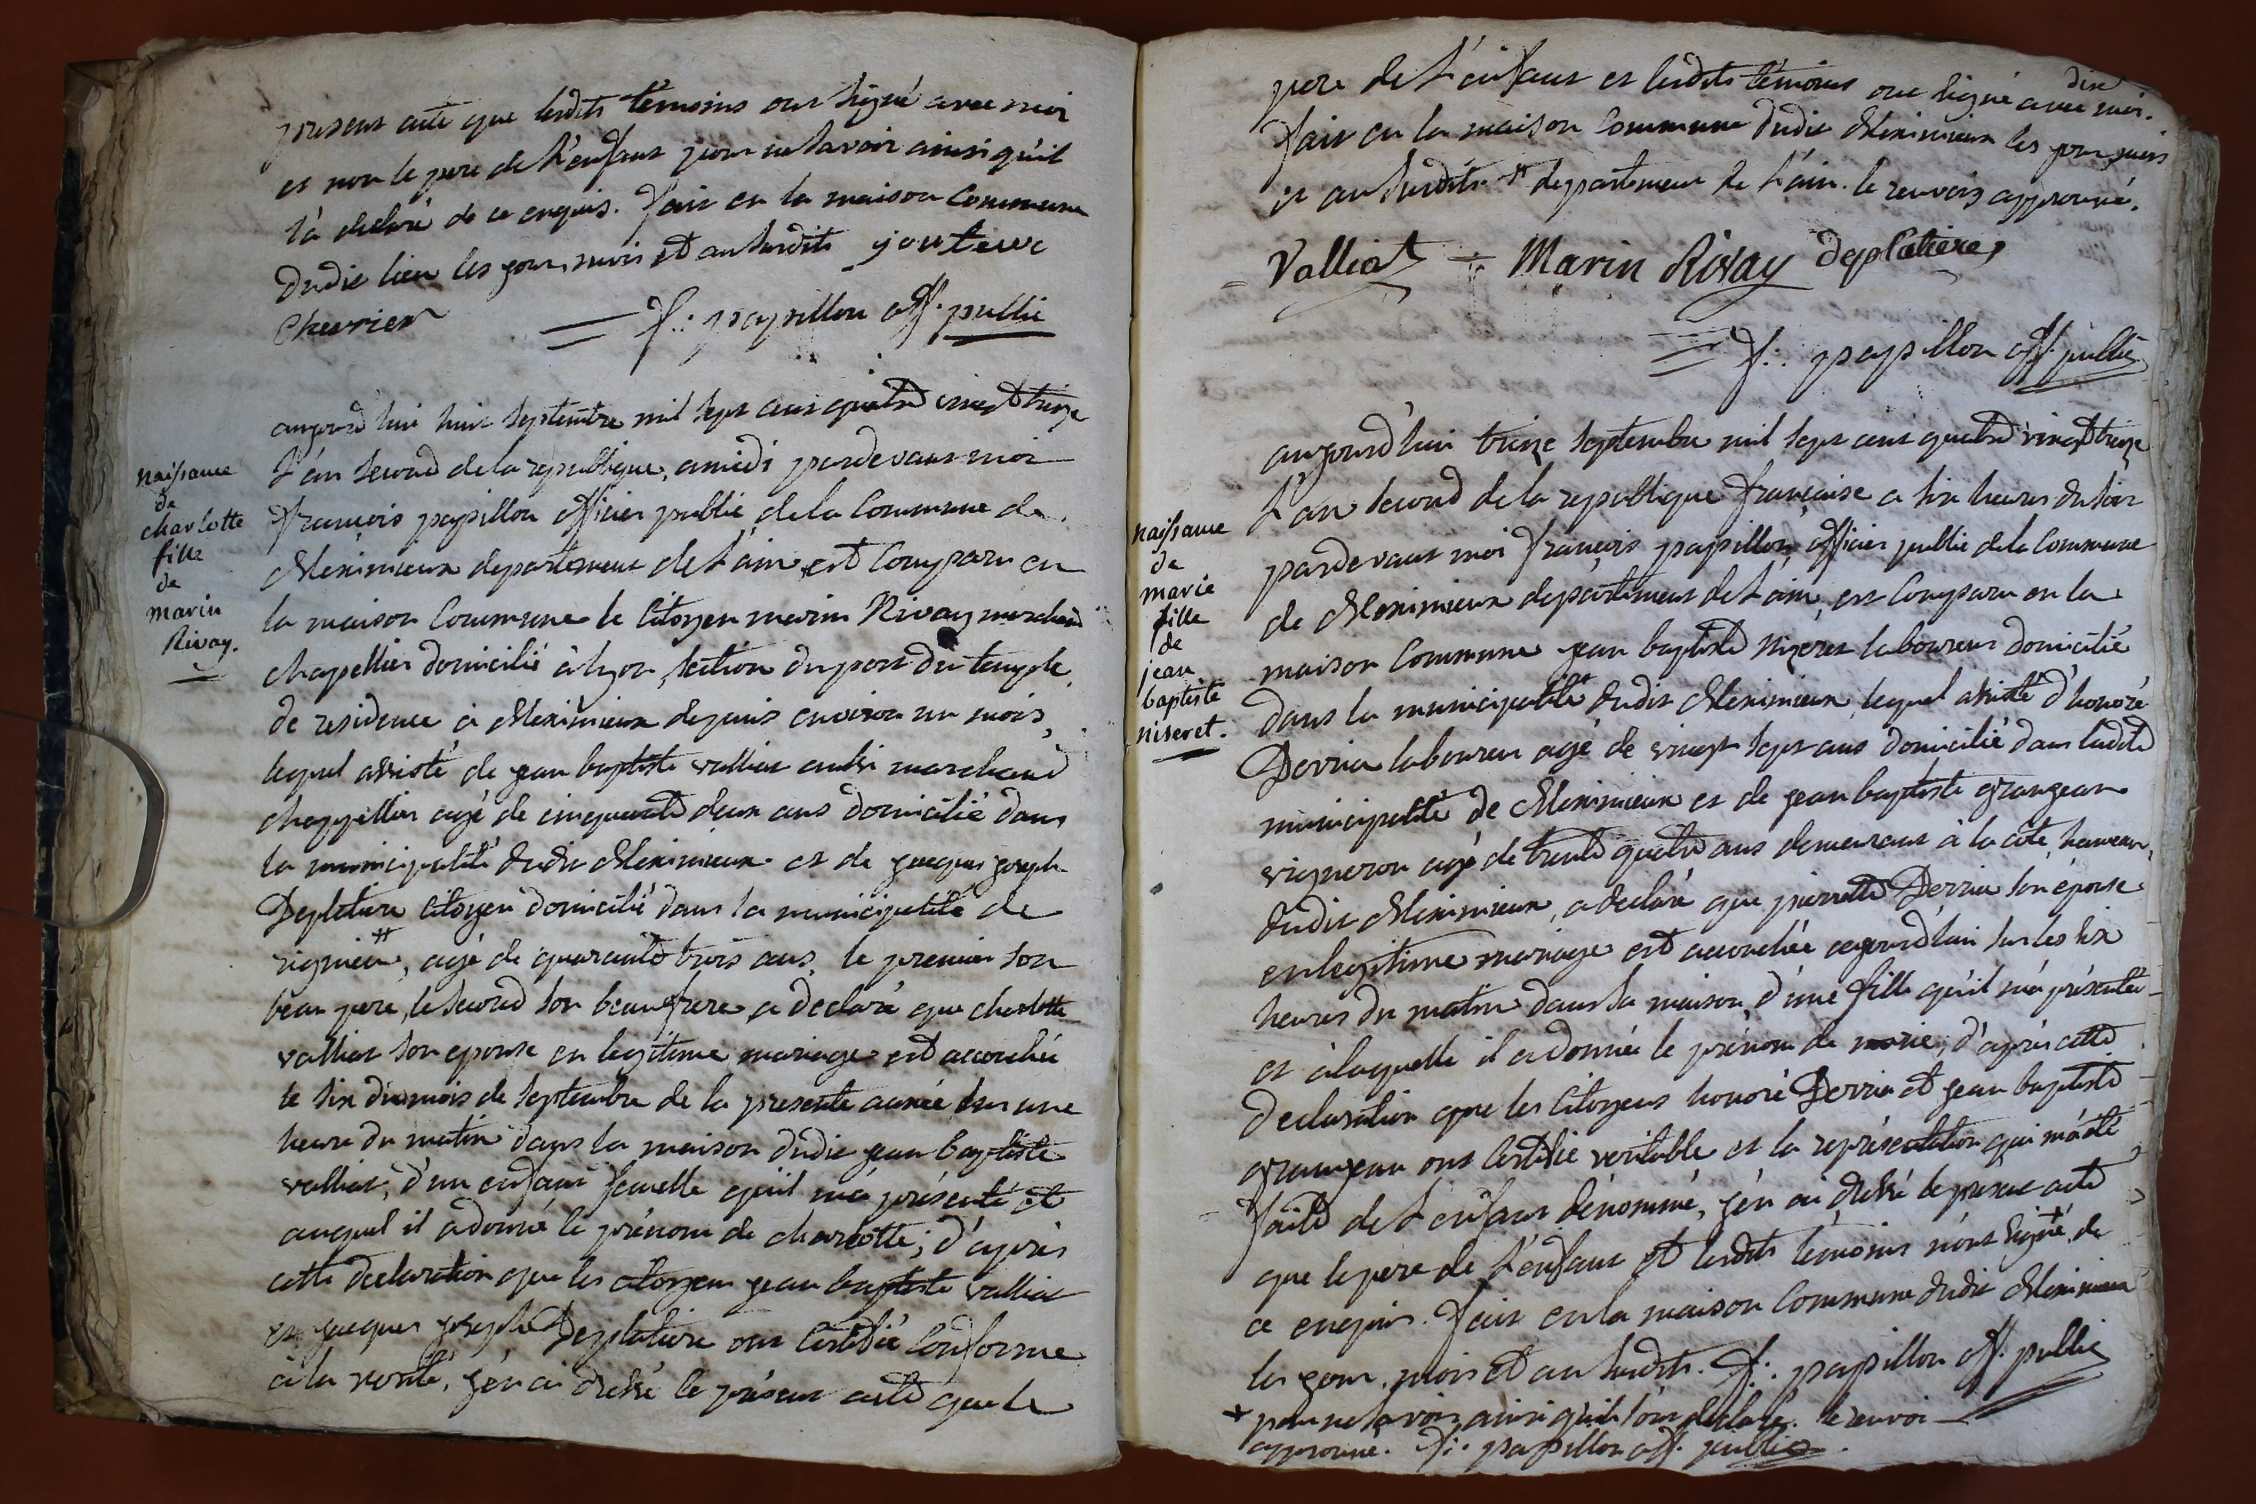 present acte que lesdits témoins ont signé avec moi
et non le pere de l'enfant pour ne savoir ainsi qu'il
l'a déclaré de ce enquis. fait en la maison Commune
dudit lieu les jour, mois et an susdits jouteux
Chevrier
F: papillon off. public
naissance
de
charlotte
fille
de
marin
Rivay.
aujourd'hui huit septembre mil sept cens quatre vingt treize
L'an second de la republique, a midi pardevant moi
françois papillon officier public de la Commune de
Meximieux departement de L'ain, est Comparu en
la maison Commune le Citoyen marin Rivay marchand
chapellier domicilié à lyon, section du port du temple
de residence à Meximieux depuis environ un mois,
lequel assisté de jean baptiste valliat aussi marchand
chappellier agé de cinquante deux ans domicilié dans
la municipalité dudit Meximieux et de jacques joseph
Deplatiere Citoyen domicilié dans la municipalité de
rignieu #, agé de quarante trois ans, le premier son
beau pere, le second son beau frere, a declaré que charlotte
valliat son epouse en legitime mariage est accouchée
le six du mois de septembre de la presente année sur une
heure du matin dans la maison dudit jean baptiste
valliat, d'un enfant femelle qu'il m'a présenté et
auquel il a donné le prénom de charlotte; d'après
cette declaration que les citoyens jean baptiste valliat
et jacques joseph Deplatiere ont Certifié Conforme
à la verité, j'en ai dressé le présent acte que le
dix
pere de L'enfant et lesdits témoins ont signé avec moi.
fait en la maison Commune dudit Meximieux les jour, mois
et an susdits # departement de L'ain. le renvois approuvé.
Valliat Marin Rivay deplatiere
F: papillon off. public
naissance
de
marie
fille
de
jean
baptiste
niseret.
aujourd'hui treize septembre mil sept cens quatre vingt treize
L'an second de la republique française a six heures du soir
pardevant moi françois papillon, officier public de la Commune
de Meximieux departement de L'ain, est Comparu en la
maison Commune jean baptiste nizeret laboureur domicilié
dans la municipalité dudit Meximieux, lequel assisté d'honoré
Derrias laboureur agé de vingt sept ans domicilié dans ladite
municipalité de Meximieux et de jean baptiste grangean
vigneron agé de trente quatre ans demeurant à la côte, hameau
dudit Meximieux, a declaré que pierrette Derrias son épouse
en legitime mariage est accouchée aujourd'hui sur les six
heures du matin dans sa maison, d'une fille qu'il m'a présentée
et à laquelle il a donnée le prénom de marie; d'après cette
declaration que les Citoyens honoré Derrias et jean baptiste
grangean ont Certifié veritable et la représentation qui m'a été
faite de L'enfant dénommé, j'en ai dressé le présent acte
que le pere de L'enfant et lesdits témoins n'ont signé + de
ce enquis. fait en la maison Commune dudit Meximieux
les jour, mois et an susdits. F: papillon off. public
+ pour ne savoir ainsi qu'ils l'ont declaré. le renvoi
approuvé. F: papillon off. public.